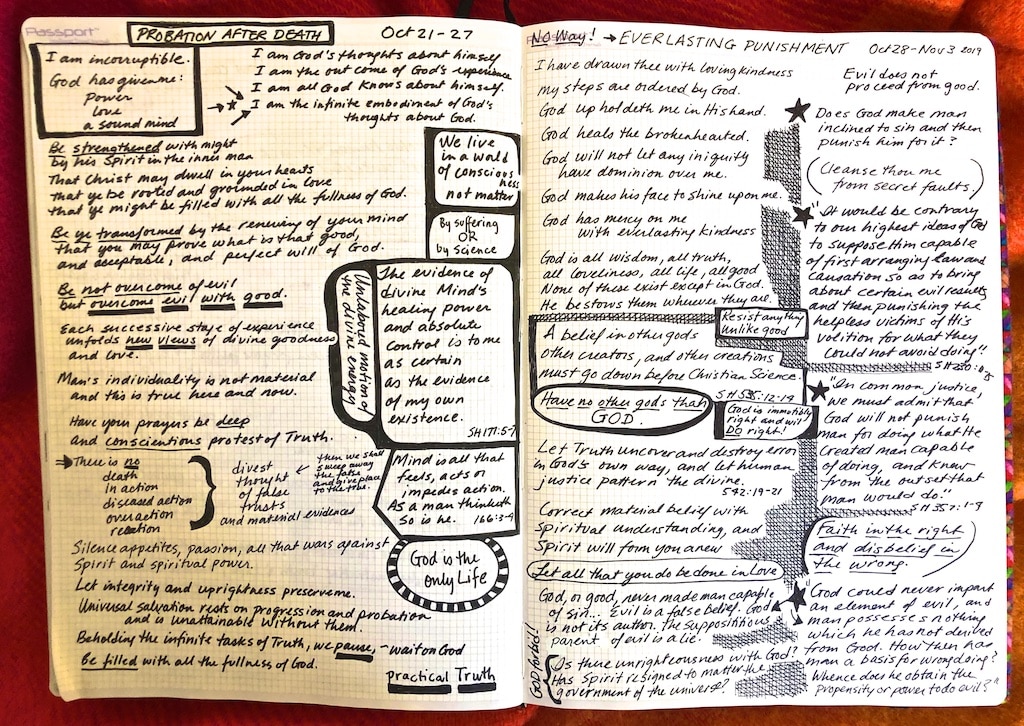 Passport
PROBATION AFTER DEATH
Oct 21-27
I am incorruptible.
God has given me:
Power
Love
a sound mind
I am God's thoughts about himself
I am the outcome of God's experience
I am all God knows about himself.
I am the infinite embodiment of God's
thoughts about God.
Be strengthened with might
by his Spirit in the inner man
That Christ may dwell in your hearts
that ye be rooted and grounded in love
that ye might be filled with all the fullness of God.
Be ye transformed by the renewing of your mind
that you may prove what is that good,
and acceptable, and perfect will of God.
Be not overcome of evil
but overcome evil with good.
Each successive stage of experience
unfolds new views of divine goodness
and love.
Man's individuality is not material
and this is true here and now.
Have your prayers be deep
and conscientious protest of Truth.
There is no
death
in action
diseased action
over action
relation
divest
thought
of false
trusts
and material evidences
then we shall
sweep away
the false
and give place
to the true.
Silence appetites, passion, all that wars against
Spirit and spiritual power.
Let integrity and uprightness preserve me.
Universal salvation rests on progression and probation
and is unattainable without them.
Beholding the infinite tasks of Truth, we pause, - wait on God
Be filled with all the fullness of God.
We live
in a world
of conscious
ness
not matter
By suffering
OR
by Science
Unlabored motion of
the divine energy
The evidence of
divine Mind's
healing power
and absolute
control is to me
as certain
as the evidence
of my own
existence.
SH 177:5-7
Mind is all that
feels, acts or
impedes action.
As a man thinketh
so is he. 166:3-4
God is the
only Life
practical Truth
Passport
No Way! → EVERLASTING PUNISHMENT
Oct 28 - Nov 3 2019
I have drawn thee with loving kindness
my steps are ordered by God.
God upholdeth me in His hand.
God heals the brokenhearted.
God will not let any iniquity
have dominion over me.
God makes his face to shine upon me.
God has mercy on me
with everlasting kindness
God is all wisdom, all truth,
all loveliness, all life, all good
None of these exist except in God.
He bestows them wherever they are.
Resist anything
unlike good
A belief in other gods
other creators, and other creations
must go down before Christian Science.
SH 535:12-14
Have no other gods than
GOD.
God is immutably
right and will
DO right!
Let Truth uncover and destroy error
in God's own way, and let human
justice pattern the divine.
542:19-21
Correct material belief with
spiritual understanding, and
Spirit will form you anew
Let all that you do be done in Love
God, or good, never made man capable
of sin... Evil is a false belief. God
is not its author. The supposititious
parent of evil is a lie.
GOD forbid!!
Is there unrighteousness with God?
Has Spirit resigned to matter the
government of the universe?
Evil does not
proceed from good.
Does God make man
inclined to sin and then
punish him for it?
Cleanse thou me
from secret faults.
"It would be contrary
to our highest ideas of God
to suppose Him capable
of first arranging law and
causation so as to bring
about certain evil results
and then punishing the
helpless victims of His
volition for what they
could not avoid doing"
"In common justice,
we must admit that
God will not punish
man for doing what He
created man capable
of doing, and knew
from the outset that
man would do."
SH 357:1-9
Faith in the right
and disbelief in
the wrong.
"God could never impart
an element of evil, and
man possesses nothing
which he has not derived
from God. How then has
man a basis for wrong doing?
Whence does he obtain the
propensity or power to do evil?"